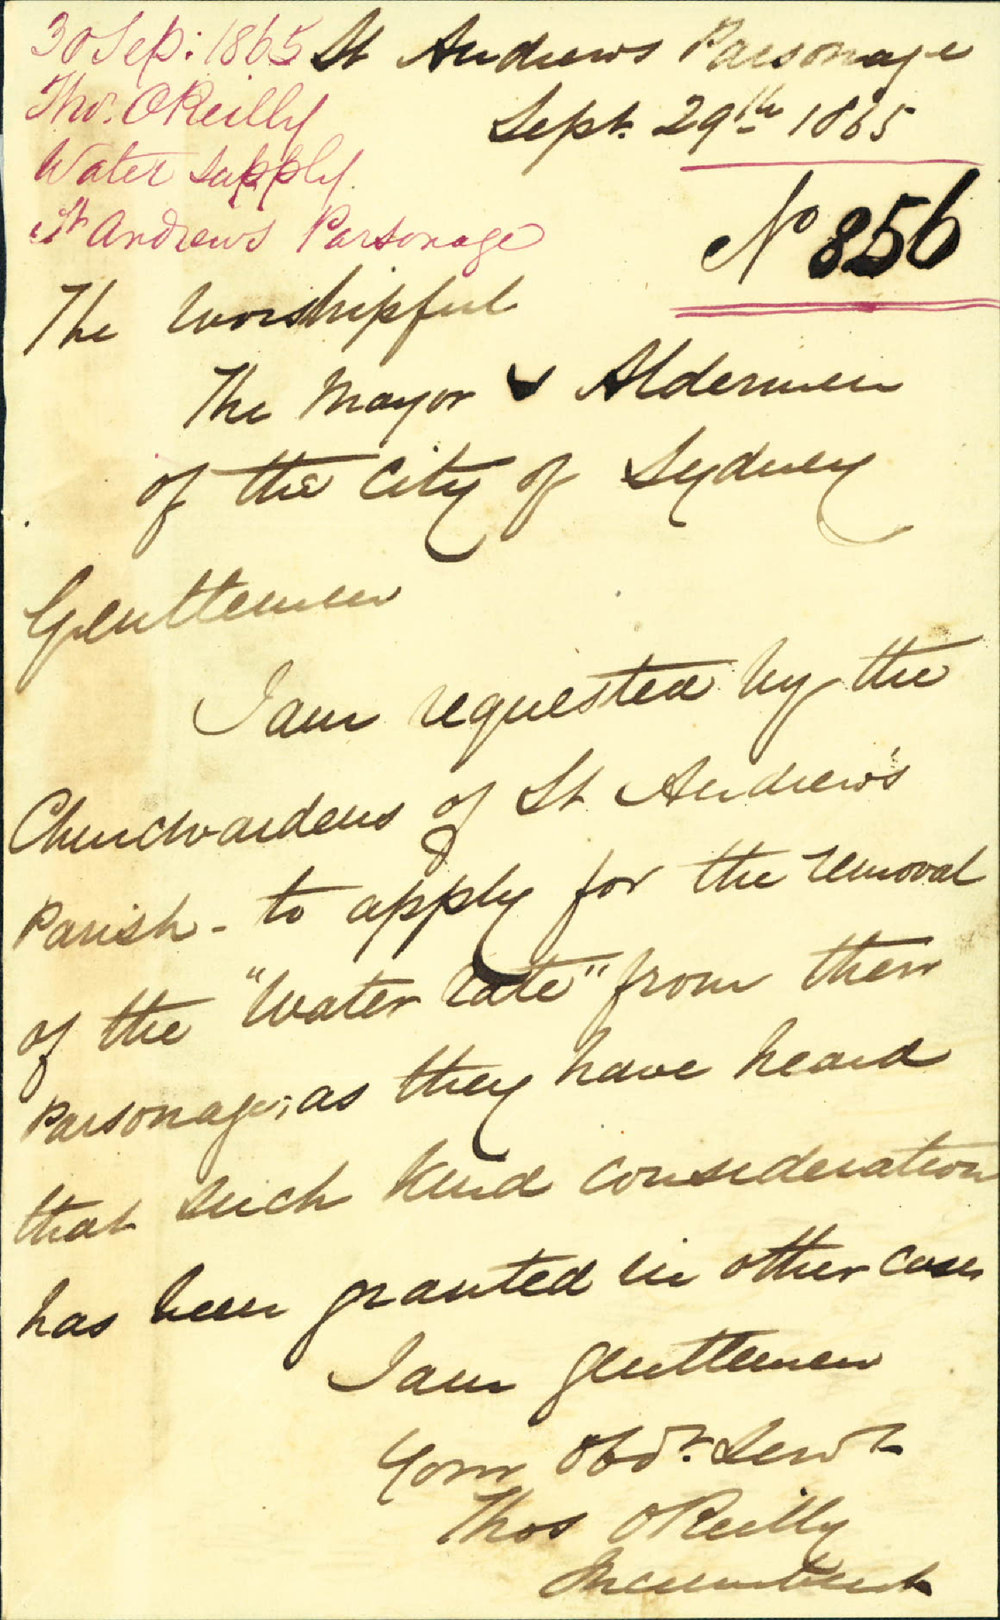 30 Sep: 1865
Thos. O'Reilly
Water supply.
St Andrews Parsonage
St Andrews Parsonage
Sept. 29th 1865
No 856
The Worshipful
The Mayor & Aldermen
of the City of Sydney
Gentlemen
I am requested by the
Churchwardens of St Andrew's
Parish - to apply for the removal
of the "Water rate" from their
Parsonage; as they have heard
that such kind consideration
has been granted in other cases
I am gentlemen
Your Obdt. Servt
Thos O'Reilly
Incumbent